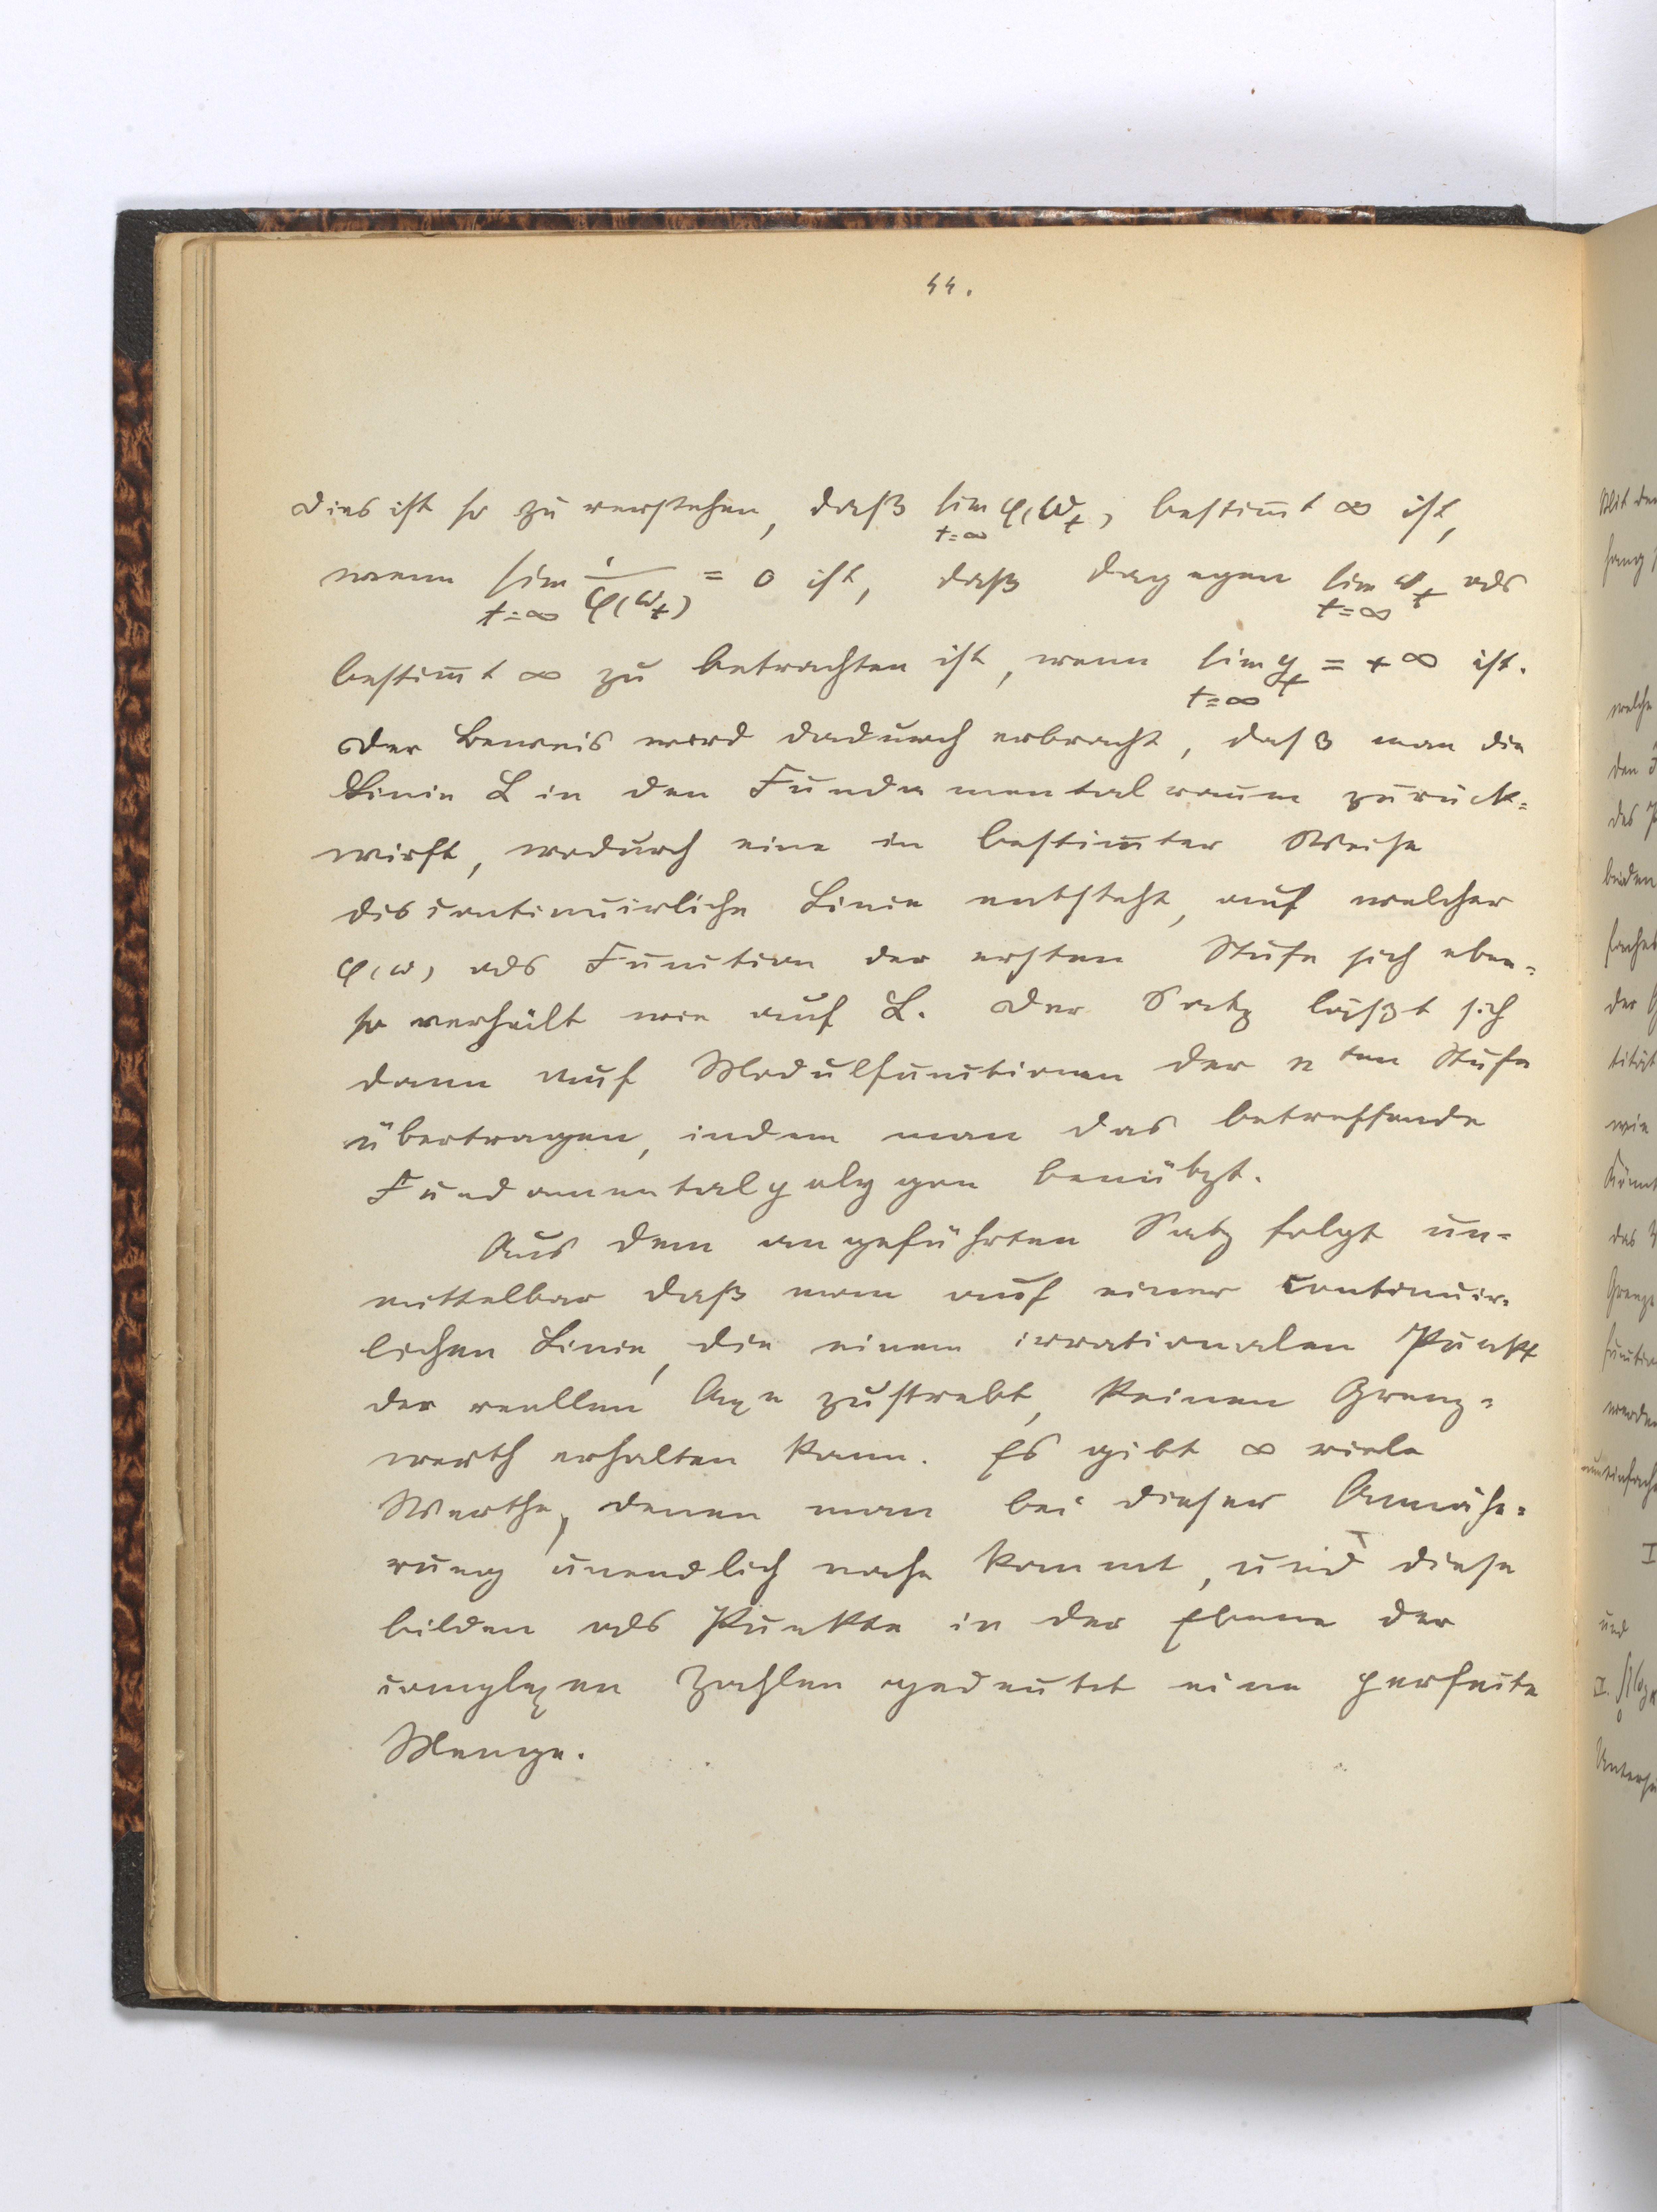 44.
Dies ist so zu verstehen, daß lim φ(ω_t) bestim̅t ∞ ist,
t=∞
wenn lim 1/φ(ω_t) = 0 ist, daß dagegen lim ω_t als
t=∞ t=∞
bestim̅t ∞ zu betrachten ist, wenn lim y_t = +∞ ist.
t=∞
Der Beweis wird dadurch erbracht, daß man die
Linie L in den Fundamentalraum zurück-
wirft, wodurch eine in bestim̅ter Weise
discontinuirliche Linie entsteht, auf welcher
φ(ω) als Function der ersten Stufe sich eben-
so verhält wie auf L. Der Satz läßt sich
dann auf Modulfunctionen der nten Stufe
übertragen, indem man das betreffende
Fundamentalpolygon benützt.
Aus dem angeführten Satz folgt un-
mittelbar daß man auf einer continuir-
lichen Linie, die einem irrationalen Punkt
der reellen Axe zustrebt, keinen Grenz-
werth erhalten kann. Es gibt ∞ viele
Werthe, denen man bei dieser Annähe-
rung unendlich nahe kommt, und diese
bilden als Punkte in der Ebene der
complexen Zahlen gedeutet eine perfecte
Menge.